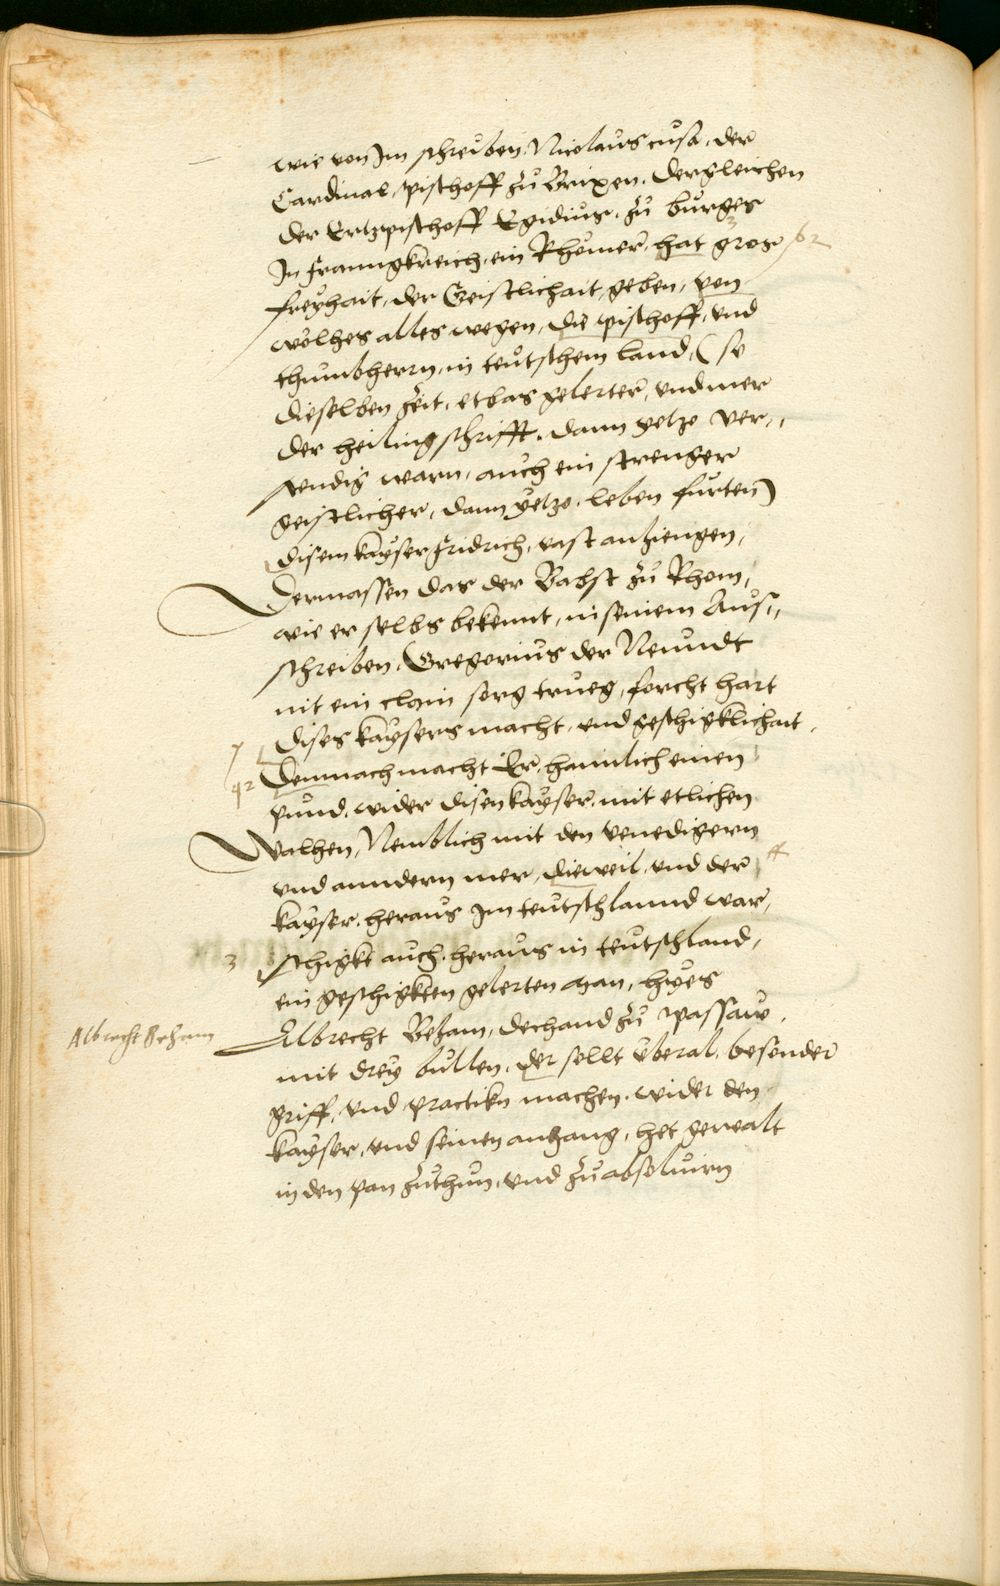 wie von Im schreiben, Nicolaus cusa, der
Cardinal, pischoff zu Brixen. dergleichen
der Ertzpischoff Egidius, zu burges
In franngkreich, ein Rhömer, hat gros
freyhait, der Geistlichait, geben, von
wölhes alles wegen, die pischoff, vnd
thumbherrn, in teutschem land, (so
dieselben zeit, etbas gelerter, vnd mer
der heiling schrifft, dann yetzo ver,,
stendig warn, auch ein strenger
geistlicher, dann yetzo, leben furten)
disem kayser fridrich, vast anhiengen,
Dermassen das der Babst zu Rhom,
wie er selbs bekennt, in seinem Aus,,
schreiben, Gregorius der Neundt
nit ein clain sorg trueg, forcht hart
dises kaysers macht, vnd geschigklichait.
Demnach macht Er, haimlich einen
pund, wider disen kayser, mit etlichen
Walhen, Nemblich mit den venedigern
vnd anndern mer, dieweil, vnd der
kayser, heraus Im teutschlannd war,
3 schigkt auch, heraus in teutschland,
ein geschigkten gelerten man, hyes
Albrecht Beham
Albrecht Beham, dechand zu passaw.
mit drey bullen, der sollt vberal, besonder
griff, vnd practikn machen, wider den
kayser, vnd seinen anhang, het gewalt
in den pan zuthun, vnd zu absoluirn